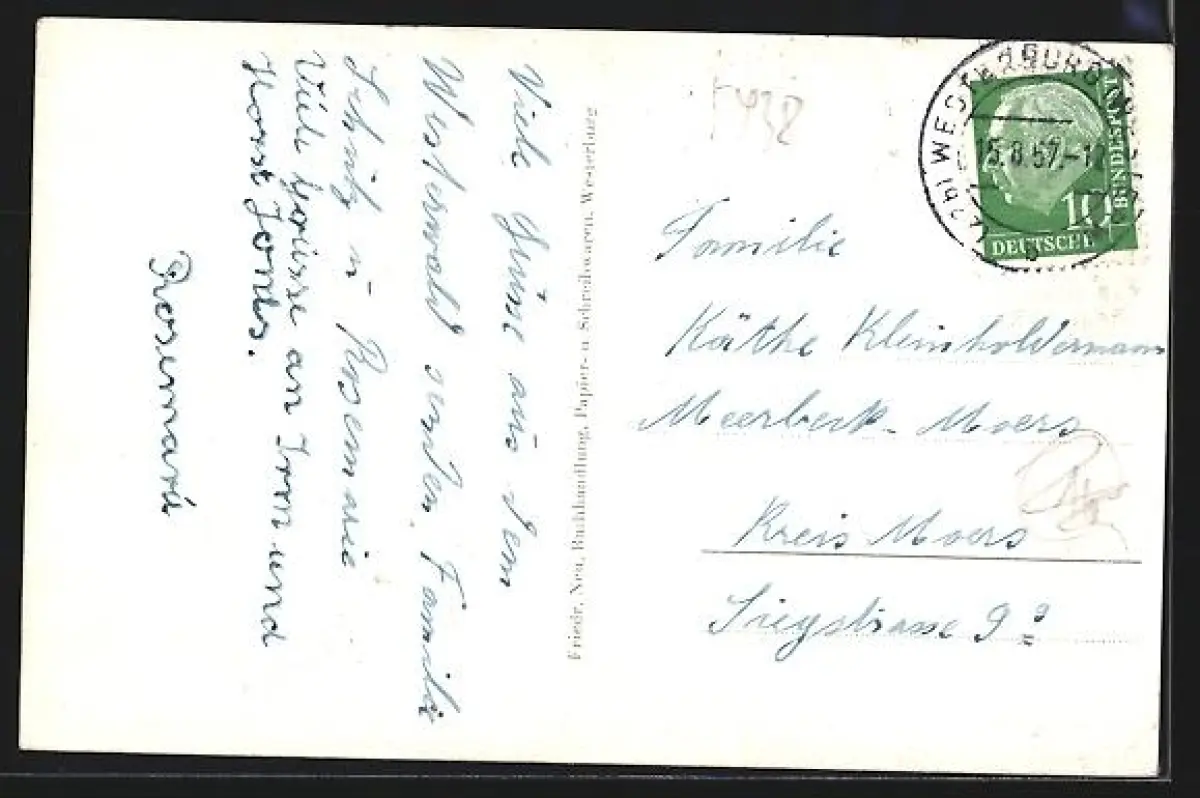 Viele Grüsse aus dem
Westerwald senden, Familie
Schmitz u Rosemarie
Viele Grüsse an Irm und
Horst Jonts.
Rosemarie
Friedr. Neu, Buchhandlung, Papier- u. Schreibwaren, Westerburg
WESTERBURG
15.8.57.-1
DEUTSCHE
BUNDESPOST
10
b
Familie
Käthe Kleinholdermann
Meerbeck-Moers
Kreis Moers
Siegstrasse 9ª